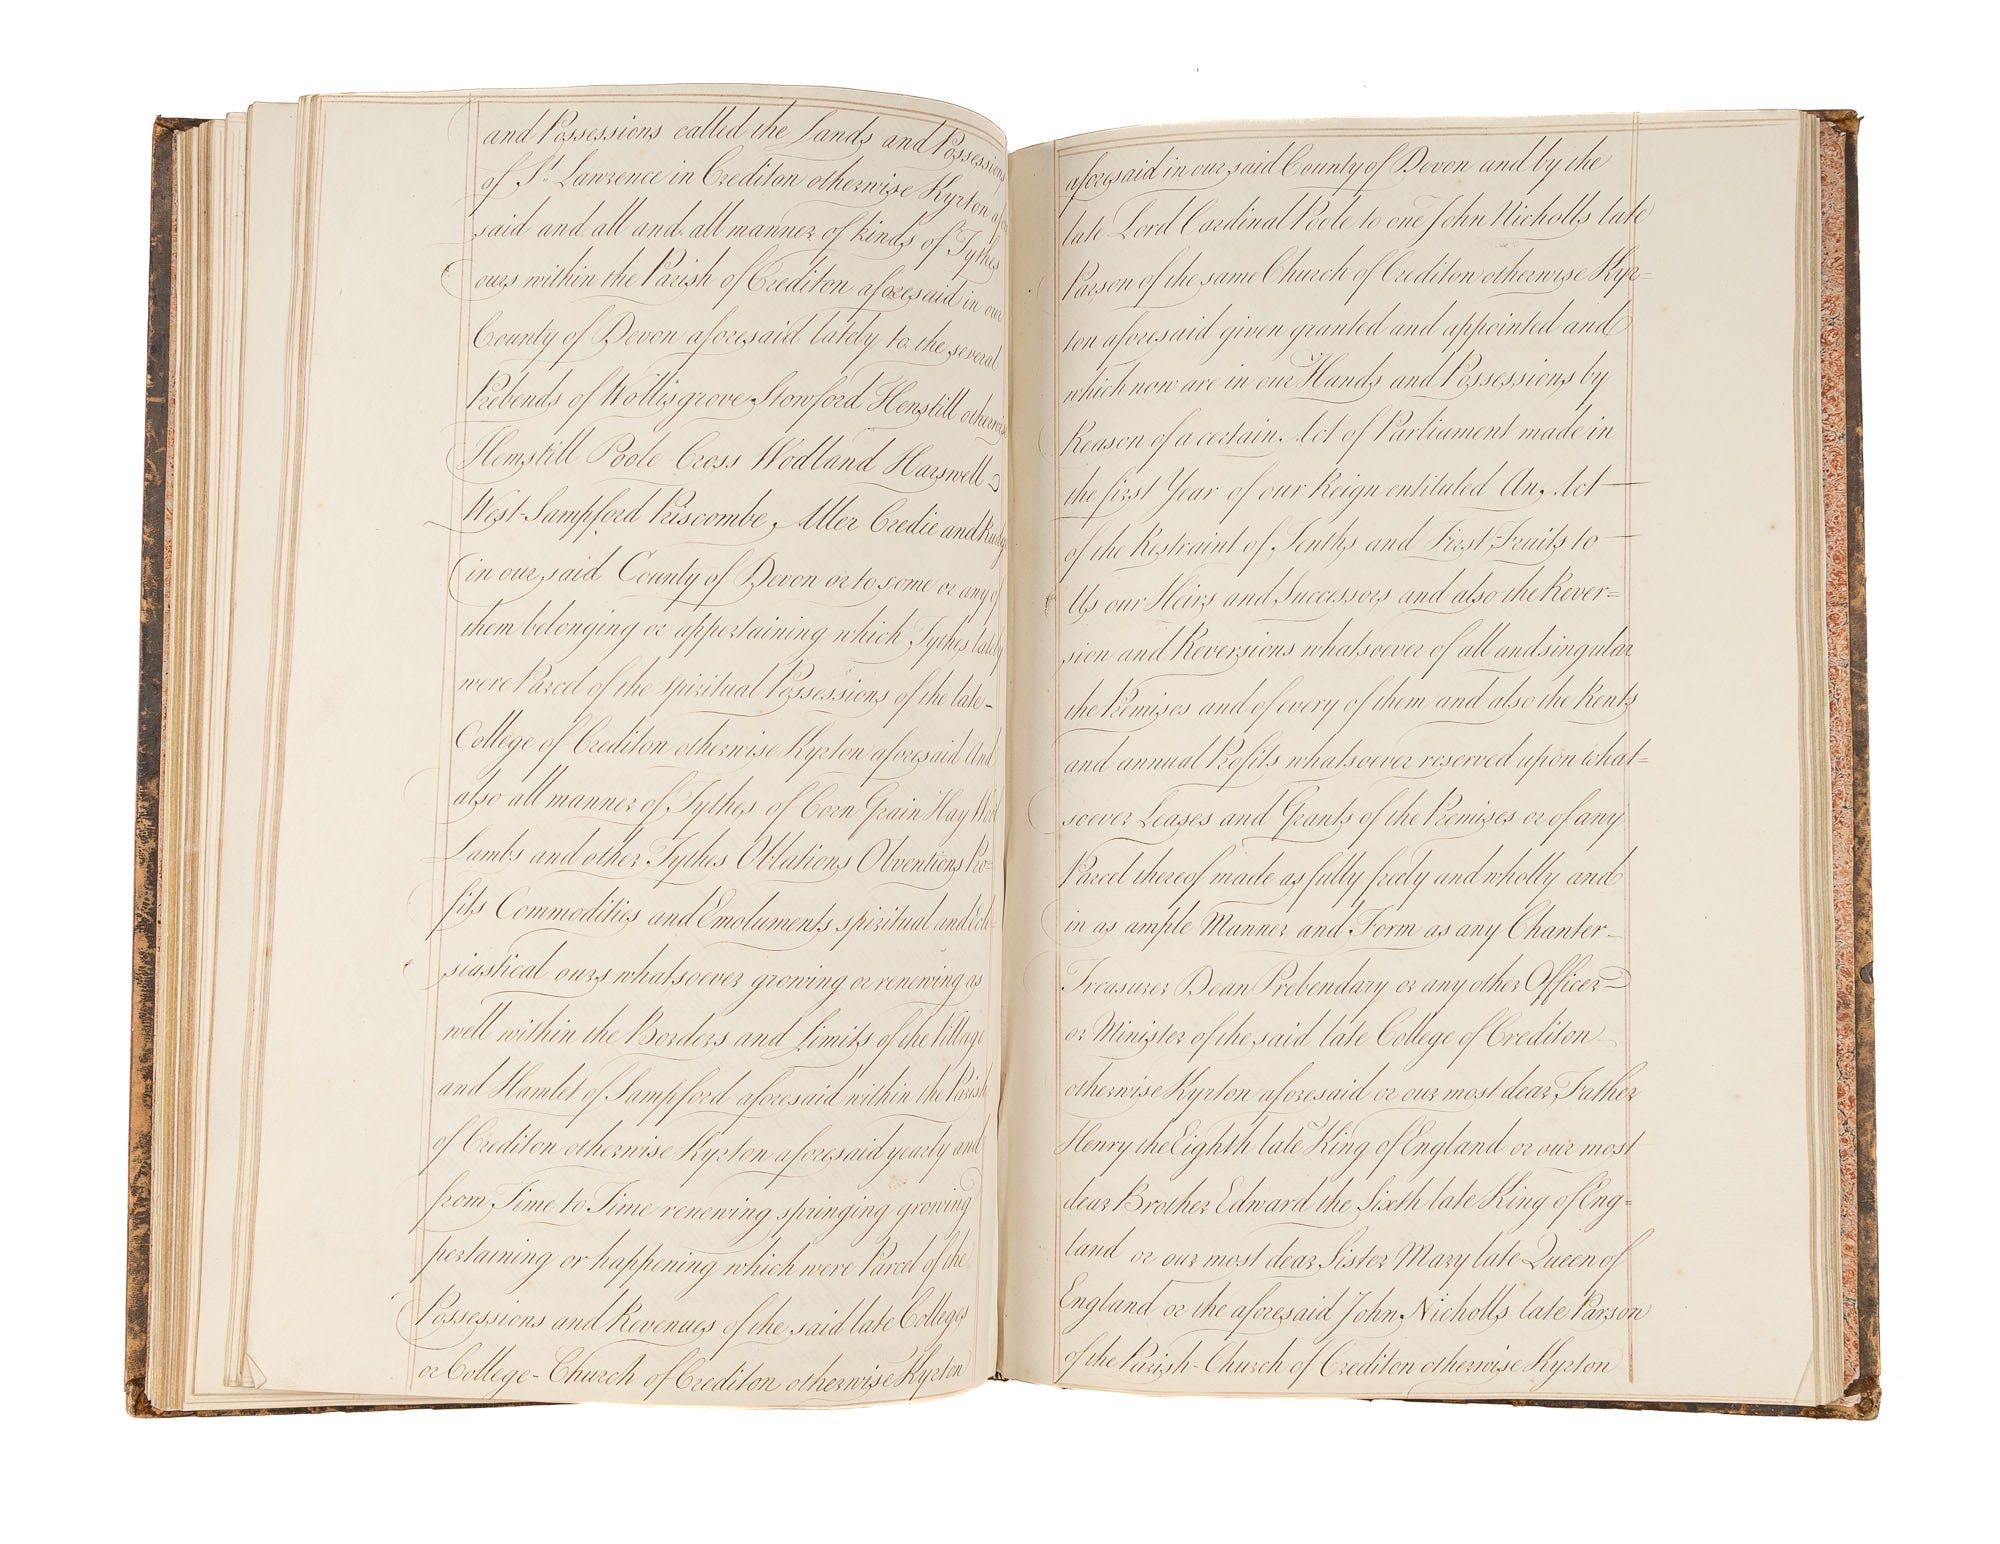 and Possessions called the Lands and Possessions
of St. Lawrence in Crediton otherwise Kyrton afore
said and all and all manner of kinds of Tythes
ours within the Parish of Crediton aforesaid in our
County of Devon aforesaid lately to the several
Prebends of Wollisgrove Stowford Henstill otherwise
Hemstill Poole Cross Wodland Harswell
West-Sampford Priscombe Aller Credie and
in our said County of Devon or to some or any of
them belonging or appertaining which Tythes lately
were Parcel of the spiritual Possessions of the late-
College of Crediton otherwise Kyrton aforesaid And
also all manner of Tythes of Corn Grain Hay Wool
Lambs and other Tythes Oblations Obventions Pro=
fits Commodities and Emoluments spiritual and Eccle=
siastical ours whatsoever growing or renewing as
well within the Borders and Limits of the Village
and Hamlet of Sampford aforesaid within the Parish
of Crediton otherwise Kyrton aforesaid yearly and
from Time to Time renewing springing growing
pertaining or happening which were Parcel of the
Possessions and Revenues of the said late Colleges
or College-Church of Crediton otherwise Kyrton
aforesaid in our said County of Devon and by the
late Lord Cardinal Poole to one John Nicholls late
Parson of the same Church of Crediton otherwise Kyr=
ton aforesaid given granted and appointed and
which now are in our Hands and Possessions by
Reason of a certain Act of Parliament made in
the first Year of our Reign entituled An Act
of the Restraint of Tenths and First-Fruits to
Us our Heirs and Successors and also the Rever=
sion and Reversions whatsoever of all and singular
the Premises and of every of them and also the Rents
and annual Profits whatsoever reserved upon what=
soever Leases and Grants of the Premises or of any
Parcel thereof made as fully freely and wholly and
in as ample Manner and Form as any Chanter
Treasurer Dean Prebendary or any other Officer
or Minister of the said late College of Crediton
otherwise Kyrton aforesaid or our most dear Father
Henry the Eighth late King of England or our most
dear Brother Edward the Sixth late King of Eng=
land or our most dear Sister Mary late Queen of
England or the aforesaid John Nicholls late Parson
of the Parish-Church of Crediton otherwise Kyrton